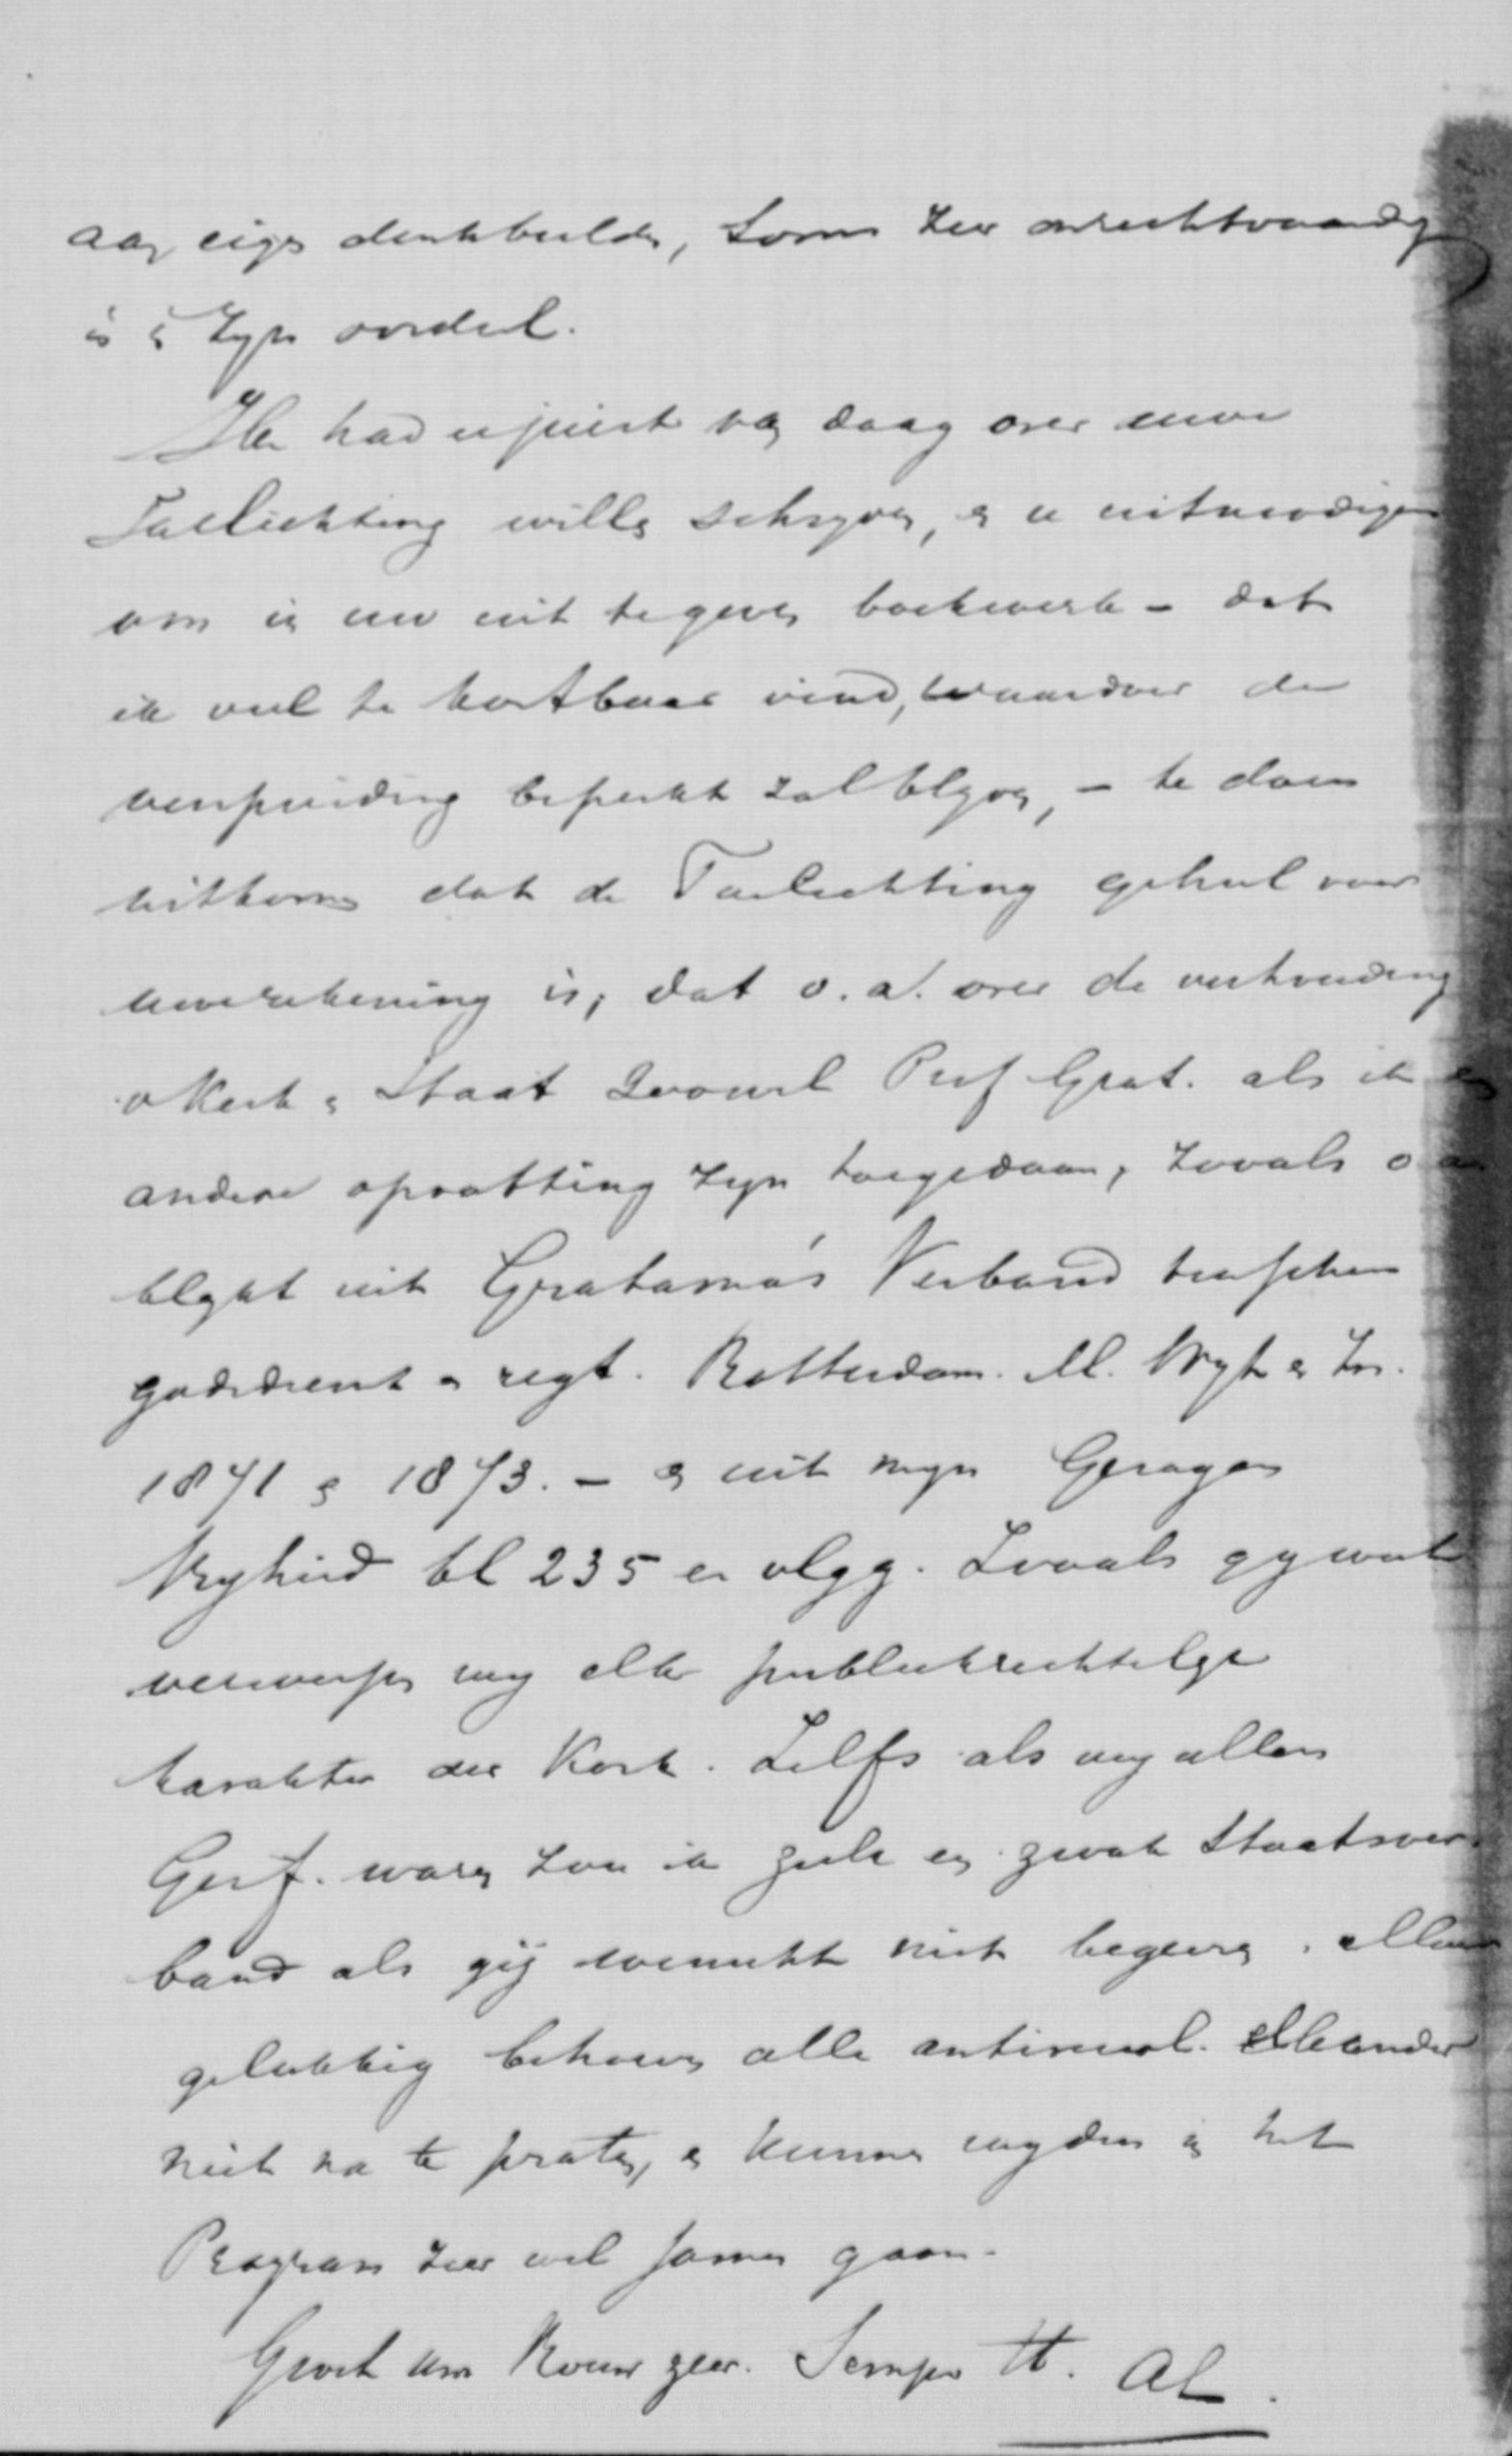 aan eigen denkbeelden, soms zeer onrechtvaardig
is in zyn oordeel.
Ik had u juist van daag over uwe
Toelichting willen schryven, en u uitnoodigen
om in uw uit te geven boekwerk – dat
ik veel te kostbaar vind, waardoor de
verspreiding beperkt zal blyven, – te doen
uitkomen dat de Toelichting geheel voor
uwe rekening is, dat o.a. over de verhouding
v Kerk en Staat zoowel Prof Grat. als ik een
andere opvatting zyn toegedaan, zooals o.a.
blykt uit Gratama's Verband tusschen
godsdienst en regt. Rotterdam. M. Wyt en Zn.
1871 en 1873. – en uit myn
Vryheid bl 235 en vlgg. Zooals gy weet
verwerpen wy elk publiekrechtelyk
karakter der Kerk. Zelfs als wy allen
Geref. waren zou ik zulk een Staatsver-
band als gij wenscht niet begeeren. Maar
gelukkig behoeven alle antirevol. elkander
niet na te praten, en kunnen wy dus in het
Program zeer wel samen gaan.
Groet uw Vrouw zeer. Semper tt. AL.